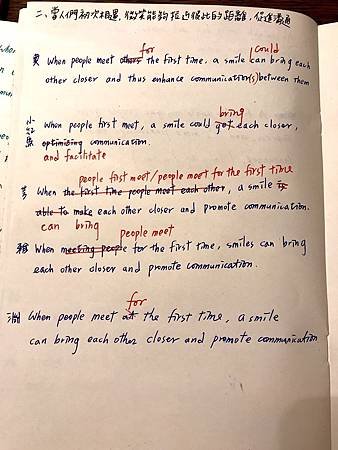 二、當人們初次相遇,微笑能夠拉近彼此的距離,促進溝通
for could
When people meet others the first time, a smile can bring each
other closer and thus enhance communication(s) between them
bring
When people first meet, a smile could get each closer,
optimizing communication.
and facilitate
people fist meet/people meet for the first time
When the first time people meet each other, a smile is
able to make each other closer and promote communication.
can bring
people meet
When meeting people for the first time, smiles can bring
each other closer and promote communication.
for
When people meet at the first time, a smile
can bring each other closer and promote communication